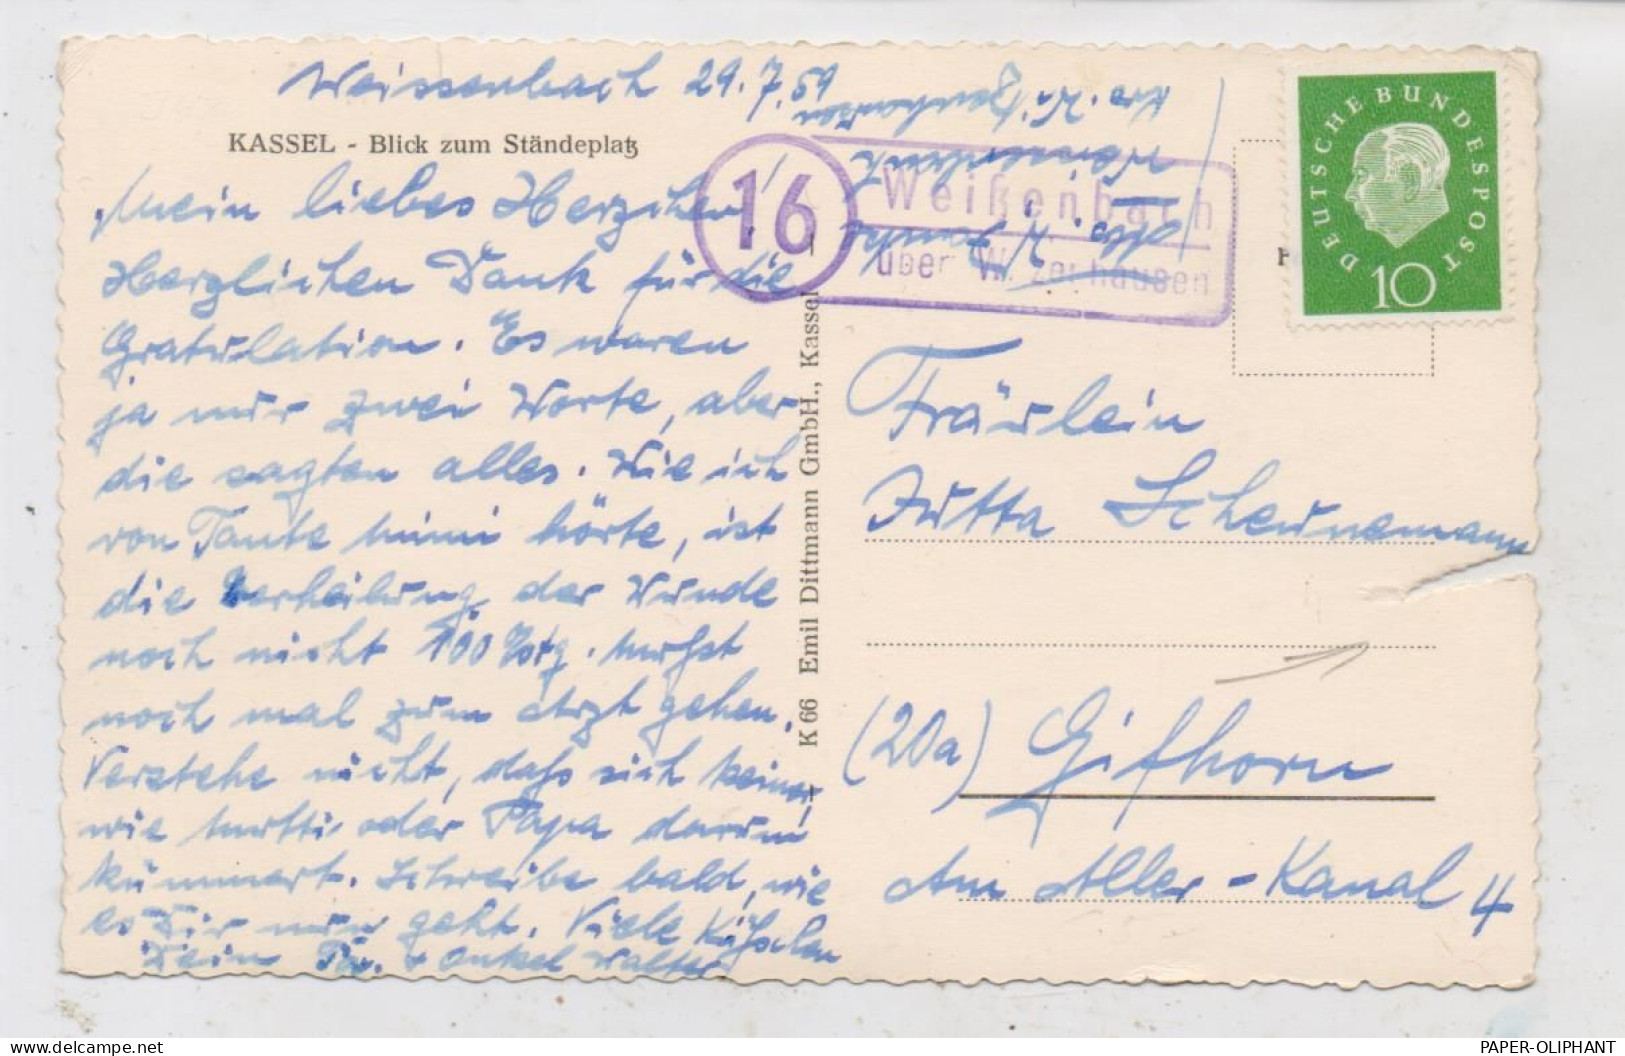 Weissenbach 29.7.59
KASSEL - Blick zum Ständeplatz
Mein liebes Herzchen!
Herzlichen Dank für die
Gratulation. Es waren
ja nur zwei Worte, aber
die sagten alles. Wie ich
von Tante Mimi hörte, ist
die Verheilung der Wunde
noch nicht 100%tig. Mußt
noch mal zum Arzt gehen.
Verstehe nicht, daß sich keiner,
wie Mutti oder Papa darum
kümmert. Schreibe bald, wie
es Dir nun geht. Viele Küßchen
Dein Onkel Walter
K 66 Emil Dittmann GmbH., Kassel
16
Weißenbach
über Witzenhausen
Weissenbach
Krs. Witzenhausen
DEUTSCHE BUNDESPOST
10
Fräulein
Jutta Scheunemann
(20a) Gifhorn
Am Aller-Kanal 4
PAPER-OLIPHANT